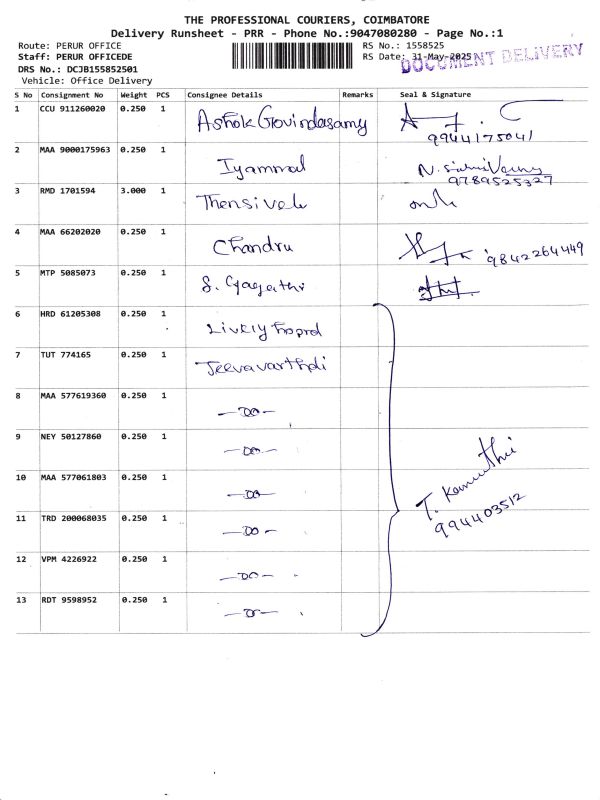 THE PROFESSIONAL COURIERS, COIMBATORE
Delivery Runsheet - PRR - Phone No.:9047080280 - Page No.:1
Route: PERUR OFFICE
RS No.: 1558525
Staff: PERUR OFFICEDE
RS Date: 31-May-2025
DOCUMENT DELIVERY
DRS No.: DCJB155852501
Vehicle: Office Delivery
S No Consignment No Weight PCS Consignee Details Remarks Seal & Signature
1 CCU 911260020 0.250 1 Ashok Govindasamy
9944175041
2 MAA 9000175963 0.250 1 Iyammal
9789525327
3 RMD 1701594 3.000 1 Thensivele
4 MAA 66202020 0.250 1 Chandru 9842264449
5 MTP 5085073 0.250 1 S. Gayathri
6 HRD 61205308 0.250 1 Lively
7 TUT 774165 0.250 1 Jeevavarthdi
8 MAA 577619360 0.250 1 -DO-
9 NEY 50127860 0.250 1 -DO-
10 MAA 577061803 0.250 1 -DO-
T.
994403512
11 TRD 200068035 0.250 1 -DO-
12 VPM 4226922 0.250 1 -DO-
13 RDT 9598952 0.250 1 -DO-